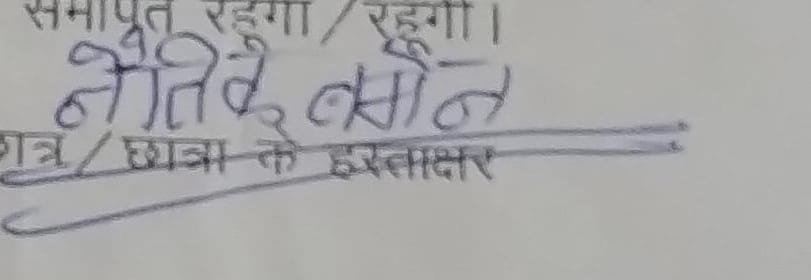 समर्पित रहूंगा / रहूंगी।
नैतिक
छात्र / छात्रा के हस्ताक्षर